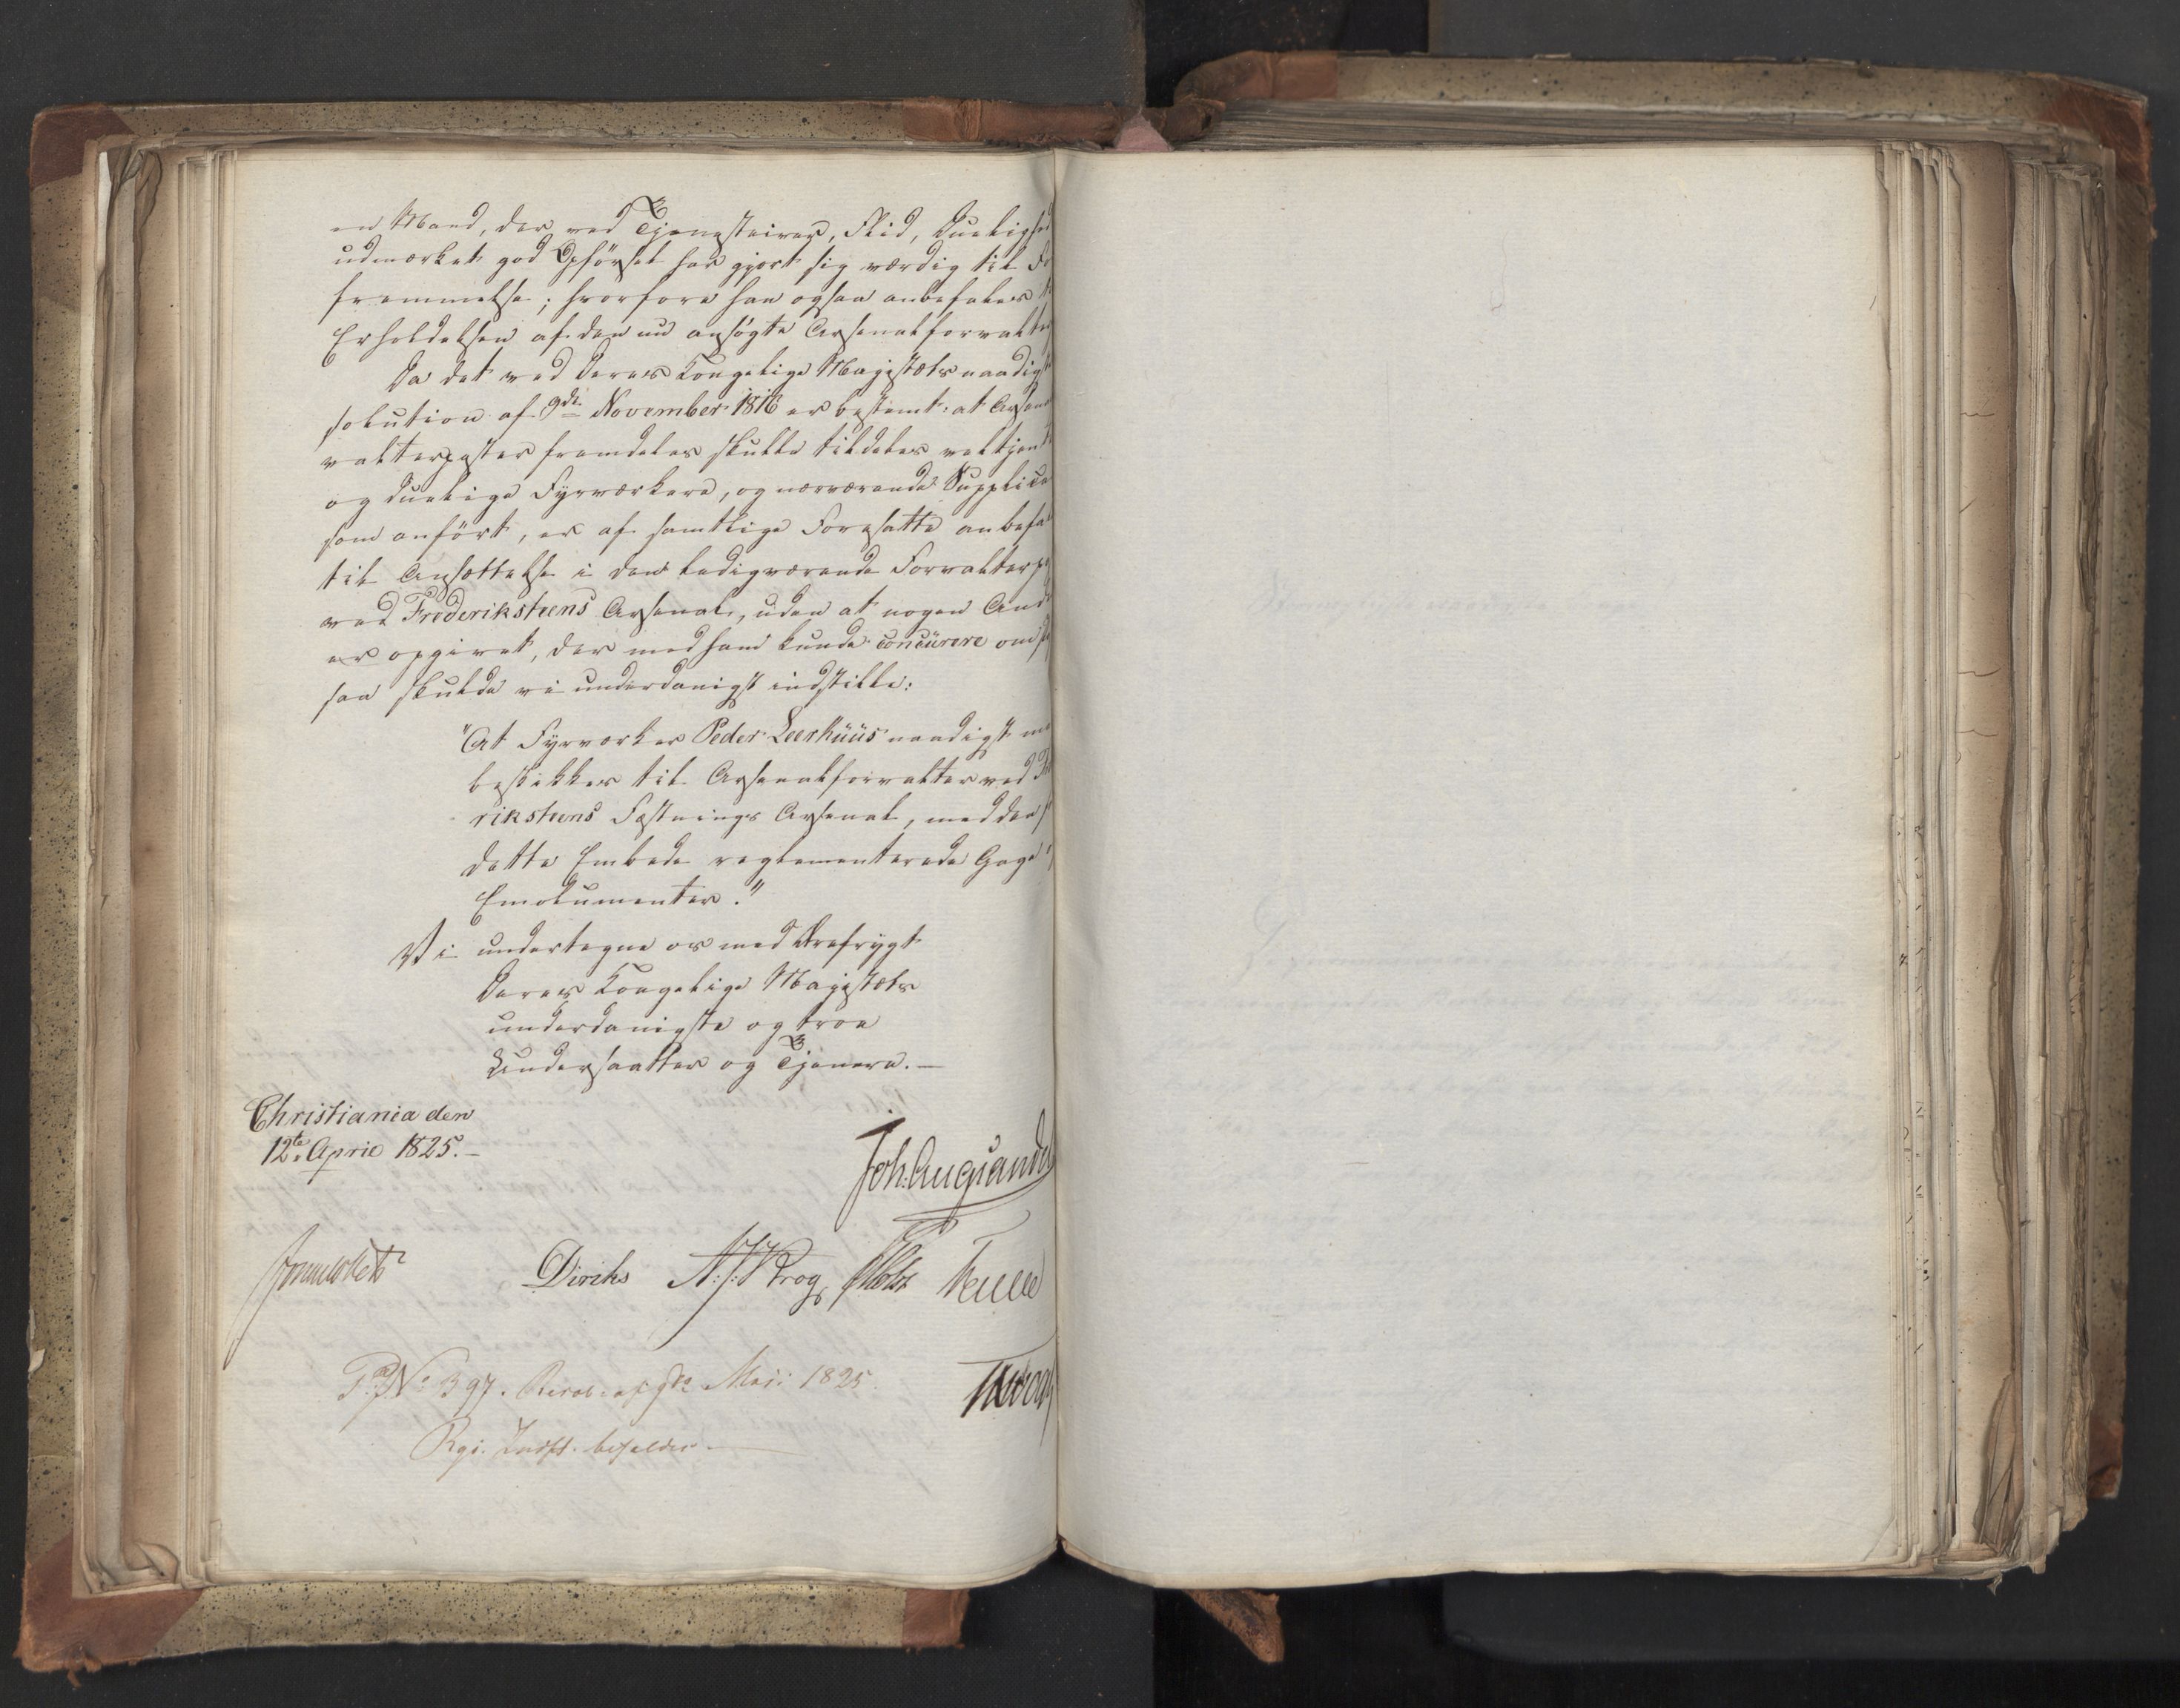 en Mand, der ved Tjenesteiver, Flid, Duelighed
udmærket god Opførsel har gjort sig værdig til Fo
fremmelse; hvorfore han ogsaa anbefales
Erholdelsen af den nu ansøgte Arsenalforvalter
Da det ved Deres Kongelige Majestæts naadigst
solution af 9de November 1816 er bestemt: at Arsena
valterposter fremdeles skulle tildeles veltjente
og duelige Fyrværkere, og nærværende Supplica
som anført, er af samtlige Foresatte anbefa
til Ansættelse i den ledigværende Forvalterpo
ved Frederiksteens Arsenal, uden at nogen And
er opgivet, der med ham kunde concürere om
saa skulde vi underdanigst indstille:
"At Fyrværker Peder Leerhüüs naadigst
beskikkes til Arsenalforvalter ved
riksteens Fæstnings Arsenal, med den
dette Embede reglementerede Gage
Emolumenter."
Vi undertegne os med Ærefrygt
Deres Kongelige Majestæts
underdanigste og troe
Undersaatter og Tjenere.—
Christiania den
12te April 1825.—
Joh. Aug. Sandels
Sommerhielm Diriks A: J: Krog PHolst
No 397. Resol: af 9de Maji 1825.
Rgs. Indst. bifaldes.—